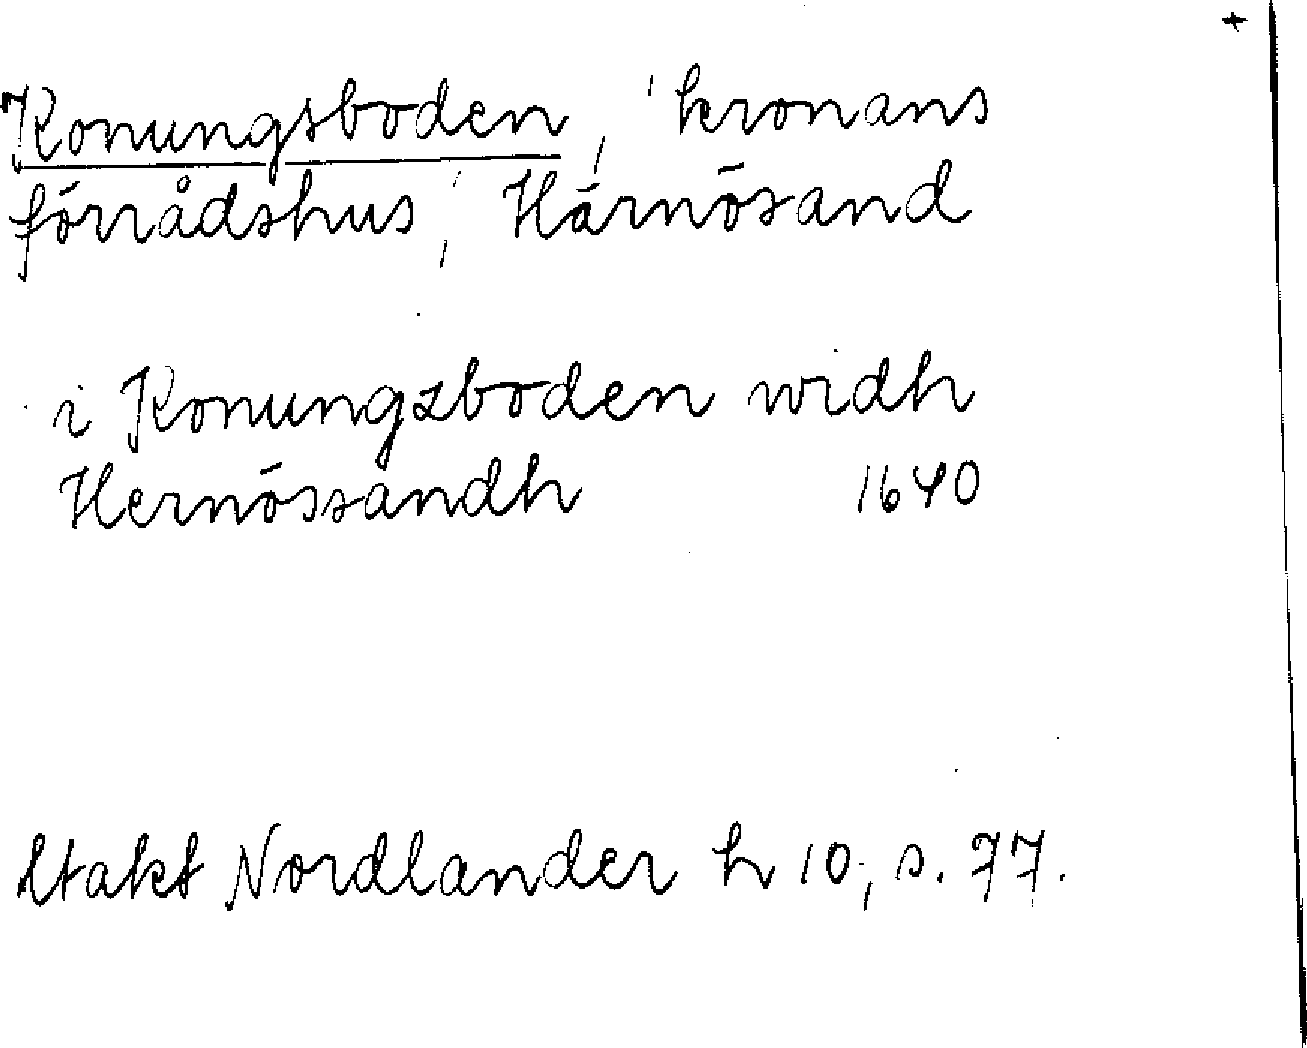 +
Konungsboden, 'kronans
förrådshus', Härnösand
i Konungzboden widh
Hernössandh 1640
Utakt Nordlander h 10, s. 77.